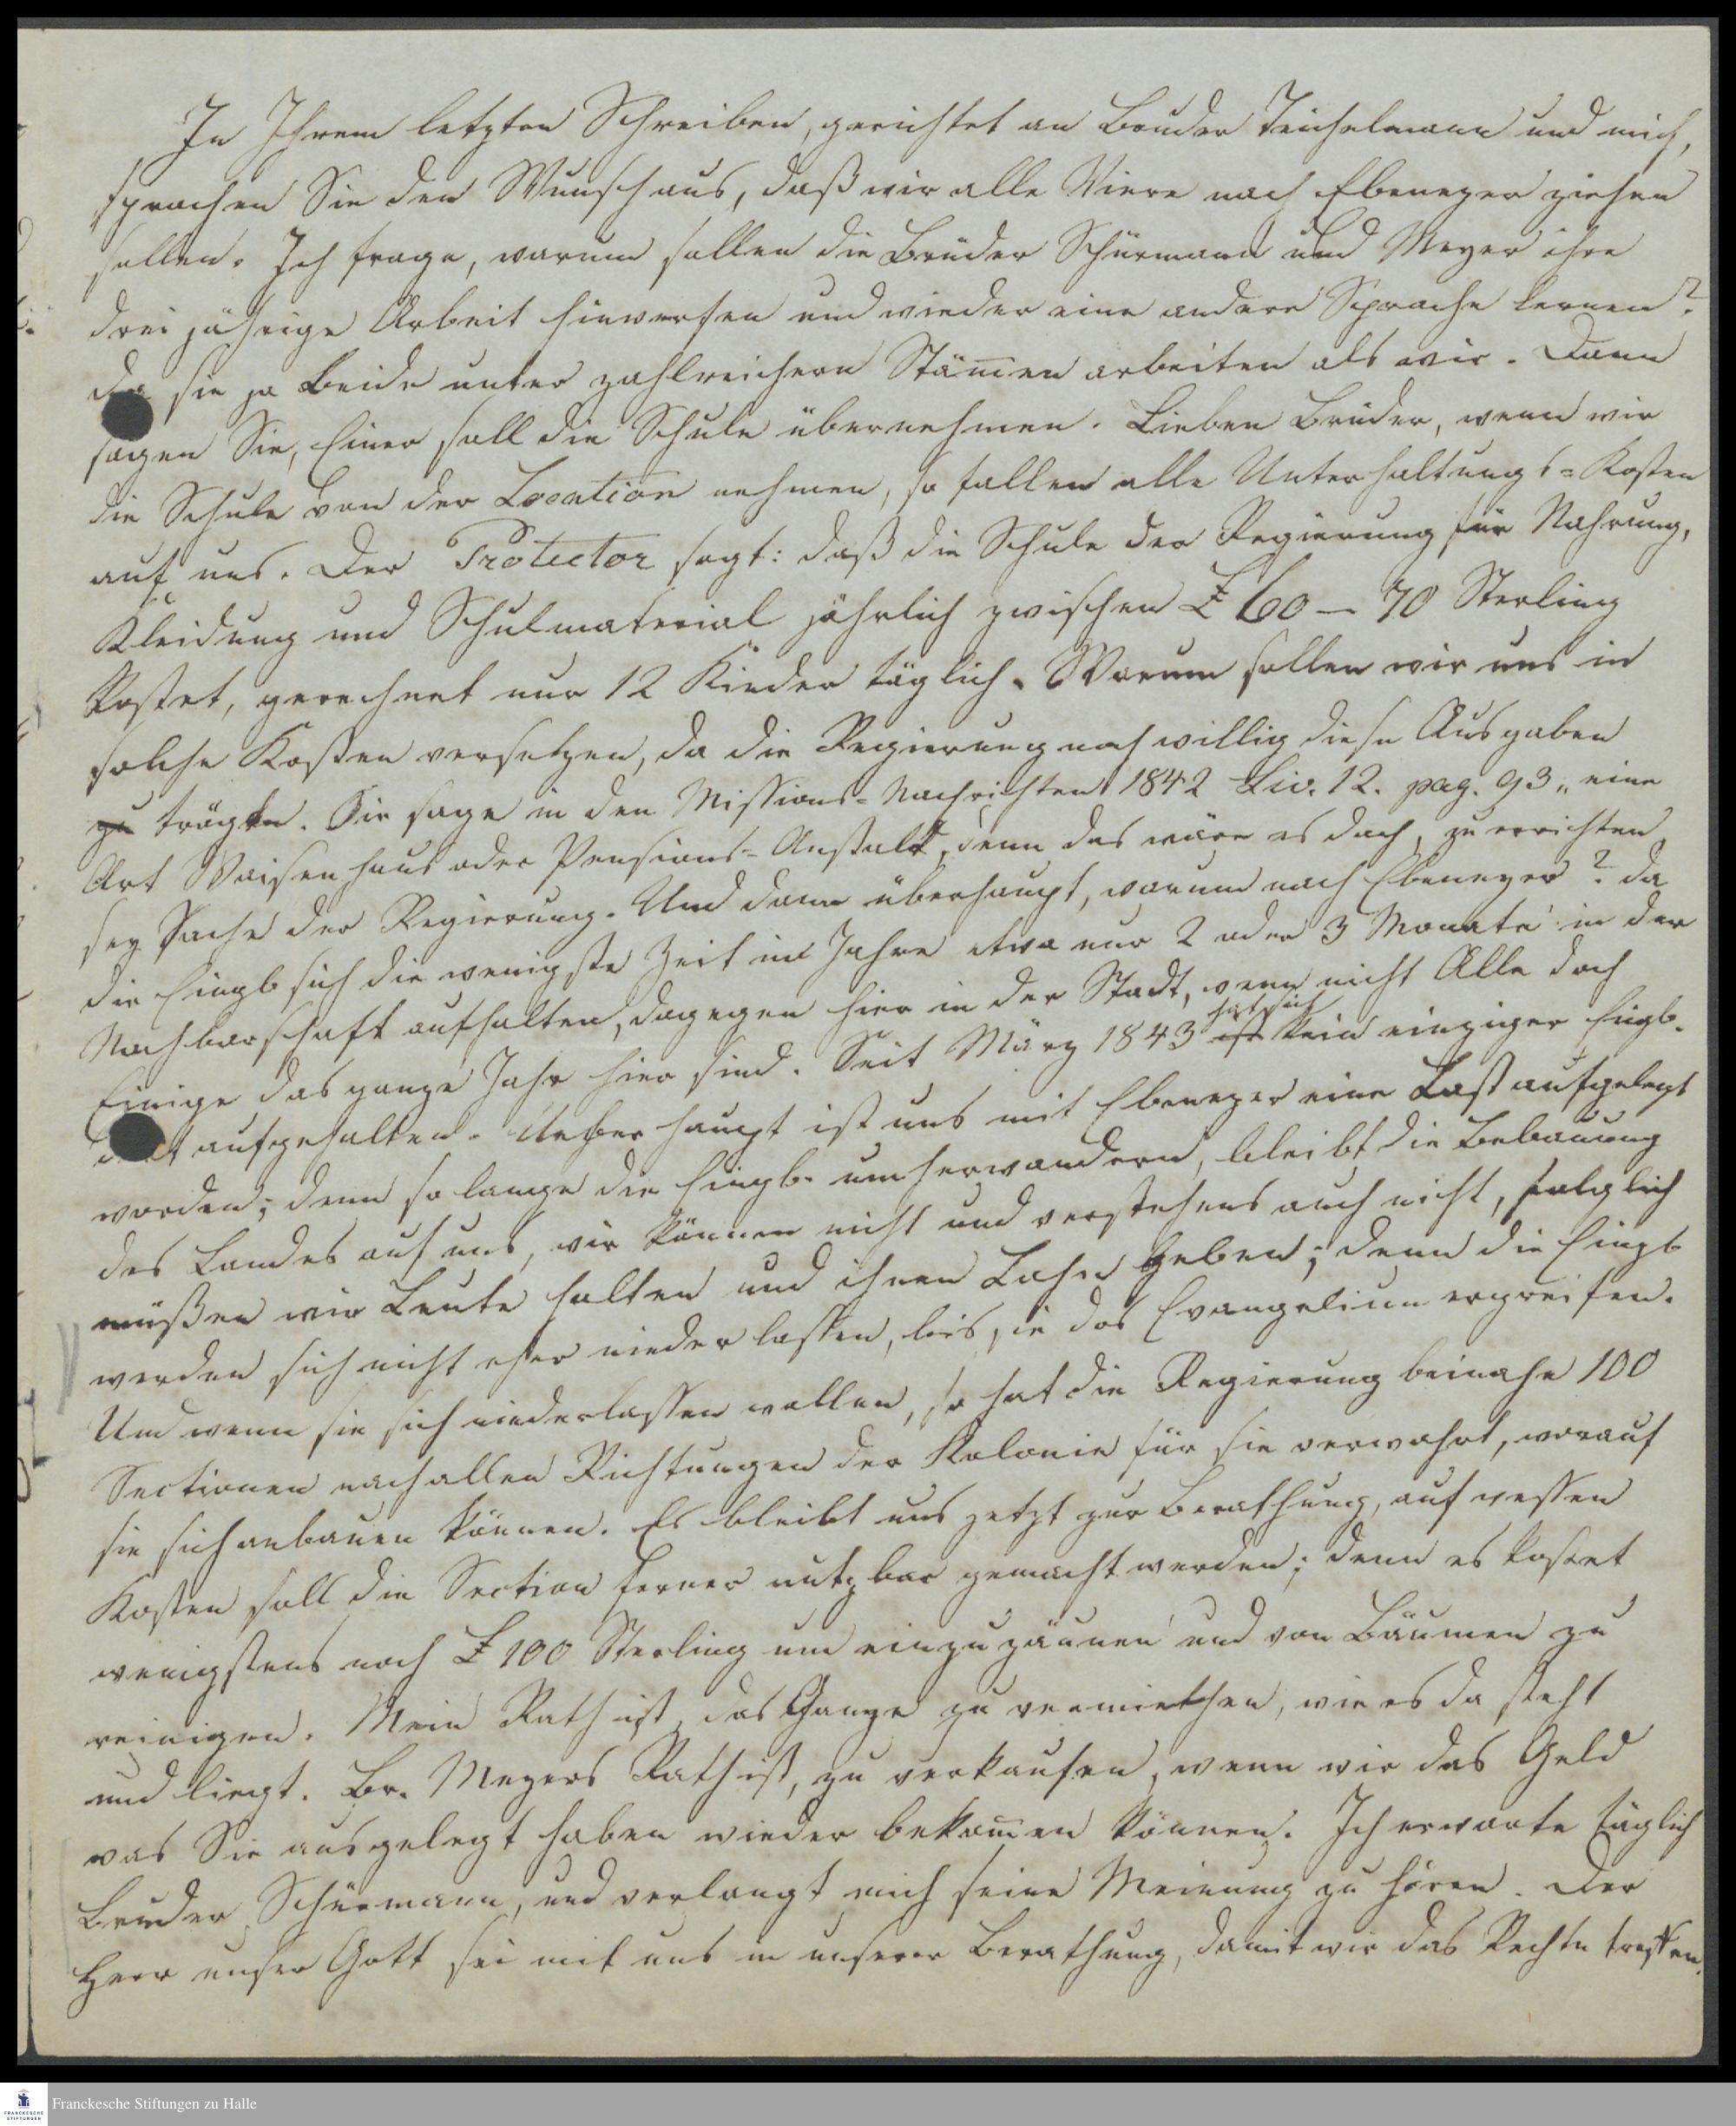 In Ihrem letzten Schreiben, gerichtet an Bruder Teichelmann und mich,
sprachen Sie den Wunsch aus, daß wir alle Viere nach Ebenezer ziehen
sollen. Ich frage, warum sollen die Brüder Schürmann und Meyer ihre
drei jährige Arbeit hinwerfen und wieder eine andere Sprache lernen?
da sie ja beide unter zahlreichern Stämen arbeiten als wir. Dann
sagen Sie, Einer soll die Schule übernehmen. Lieben Brüder, wenn wir
die Schule von der Location nehmen, so fallen alle Unterhaltungs=Kosten
auf uns. Der Protector sagt: daß die Schule der Regierung für Nahrung,
Kleidung und Schulmaterial jährlich zwischen £ 60 – 70 Sterling
kostet, gerechnet nur 12 Kinder täglich. Warum sollen wir uns in
solche Kosten versetzen, da die Regierung noch willig diese Ausgaben
zu trägt. Sie sage in den Missions=Nachrichten 1842 Liv. 12. pag. 93 „ eine
Art Waisenhaus oder Pensions=Anstalt, denn das wäre es doch, zu errichten
sey Sache der Regierung. Und dann überhaupt, warum nach Ebenezer? da
die Eingb sich die wenigste Zeit im Jahre etwa nur 2 oder 3 Monate in der
Nachbarschaft aufhalten, dagegen hier in der Stadt, wenn nicht Alle doch
Einige das ganze Jahr hier sind. Seit März 1843 ist hat sich kein einziger Eingb.
dort aufgehalten. Ueberhaupt ist uns mit Ebenezer eine Last aufgelegt
worden; denn so lange die Eingb. umherwandern, bleibt die Bebauung
des Landes auf uns, wir können nicht und verstehens auch nicht, folglich
müßen wir Leute halten und ihnen Lohn geben; denn die Eingb
werden sich nicht eher niederlassen, bis sie das Evangelium ergreifen.
Und wenn sie sich niederlassen wollen, so hat die Regierung beinahe 100
Sectionen nach allen Richtungen der Kolonie für sie verwahrt, worauf
sie sich anbauen können. Es bleibt uns jetzt zur Berathung, auf wessen
Kosten soll die Section ferner nutzbar gemacht werden; denn es kostet
wenigstens noch £ 100 Sterling um einzuzäunen und von Bäumen zu
reinigen. Mein Rath ist, das Ganze zu vermiethen, wie es da steht
und liegt. Br. Meyers Rath ist, zu verkaufen, wenn wir das Geld
was Sie ausgelegt haben wieder bekomen können. Ich erwarte täglich
Bruder Schürmann, und verlangt mich seine Meinung zu hören. Der
Herr unser Gott sei mit uns in unserer Berathung, damit wir das Rechte treffen.
FRANCKESCHE
STIFTUNGEN
Franckesche Stiftungen zu Halle